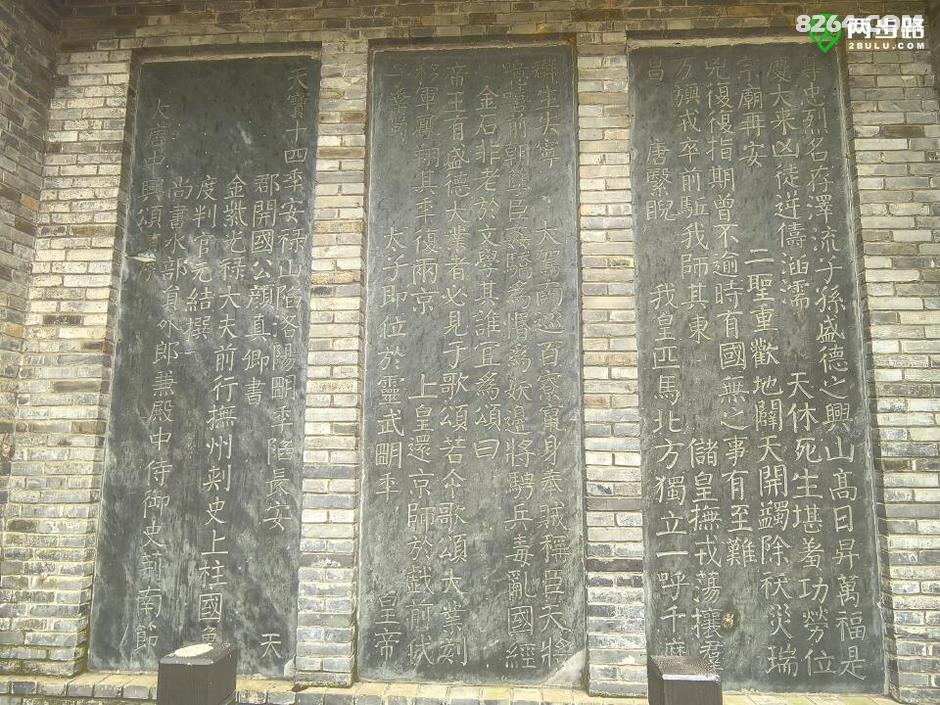 大唐中興頌有序
尚書水部員外郎兼殿中侍御史荊南節
度判官元結撰
金紫光祿大夫前行撫州刺史上柱國魯
郡開國公顏真卿書
天寶十四年安祿山陷洛陽朙年陷長安 天
幸蜀 太子即位於靈武朙年 皇帝
移軍鳳翔其年復兩京 上皇還京師於戲前代
帝王有盛德大業者必見于歌頌若今歌頌大業刻
金石非老於文學其誰宜為頌曰
噫嘻前朝孽臣姦驕為惛為妖邊將騁兵毒亂國經
群生失寧 大駕南巡百寮竄身奉賊稱臣天將
昌唐繄睨 我皇匹馬北方獨立一呼千麾
万旟戎卒前駈我師其東 儲皇撫戎蕩攘羣
兇復復指期曾不逾時有國無之事有至難
宗廟再安 二聖重歡地闢天開蠲除祅災瑞
慶大來凶徒逆儔涵濡 天休死生堪羞功勞位
尊忠烈名存澤流子孫盛德之興山高日昇萬福是
8264.COM
两步路
2BULU.COM